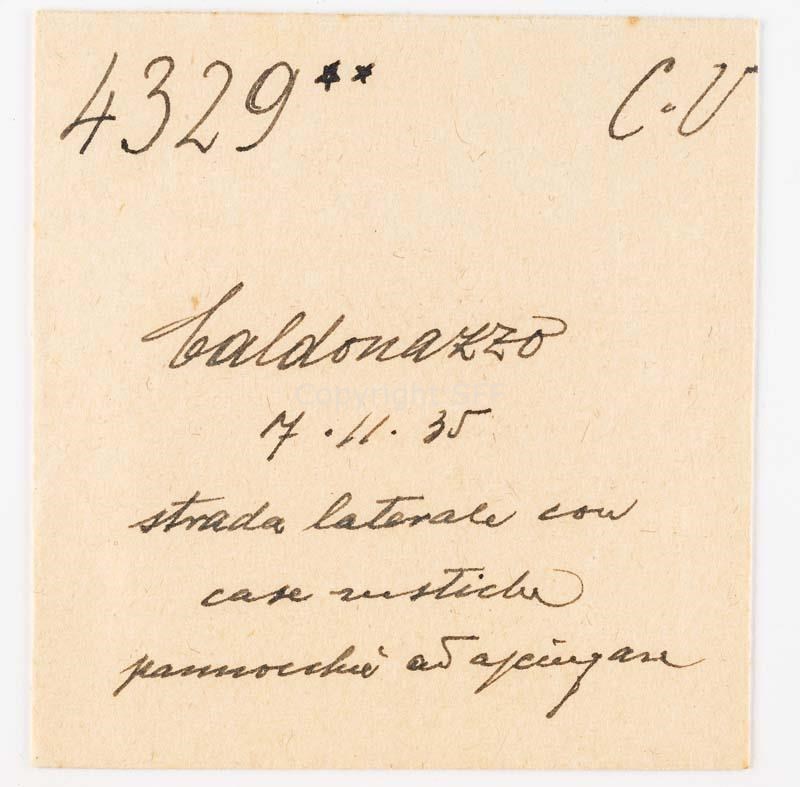 4329** C.V
Caldonazzo
7.11.35
strada laterale con
case rustiche
pannocchie ad asciugare